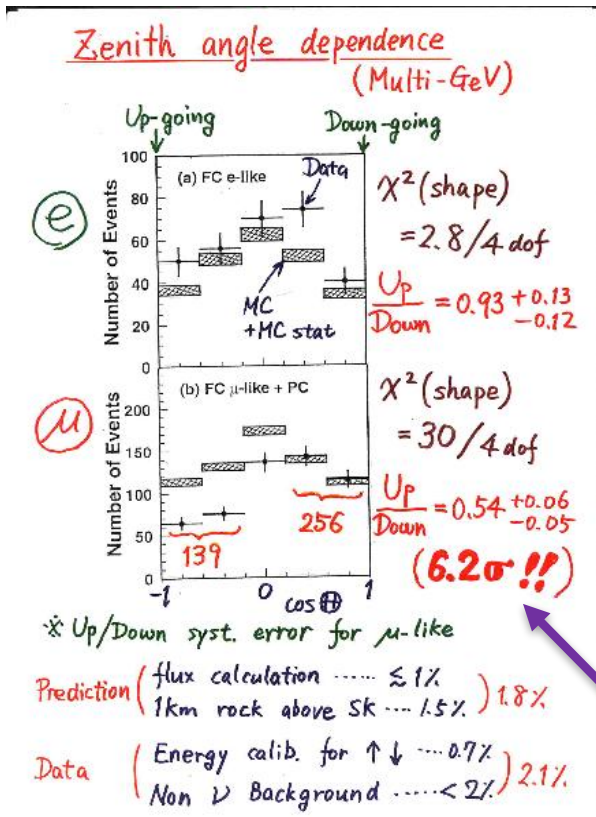 Zenith angle dependence
(Multi-GeV)
Up-going
Down-going
e
Number of Events
100
80
60
40
20
0
(a) FC e-like
Data
MC
+MC stat
χ²(shape)
=2.8/4 dof
Up/Down = 0.93 +0.13 -0.12
μ
Number of Events
200
150
100
50
0
(b) FC μ-like + PC
139
256
-1
0
1
cos Θ
χ²(shape)
= 30/4 dof
Up/Down = 0.54 +0.06 -0.05
(6.2σ!!)
※ Up/Down syst. error for μ-like
Prediction ( flux calculation ...... ≲ 1%
1km rock above SK .... 1.5% ) 1.8%
Data ( Energy calib. for ↑↓ .... 0.7%
Non ν Background ..... < 2% ) 2.1%